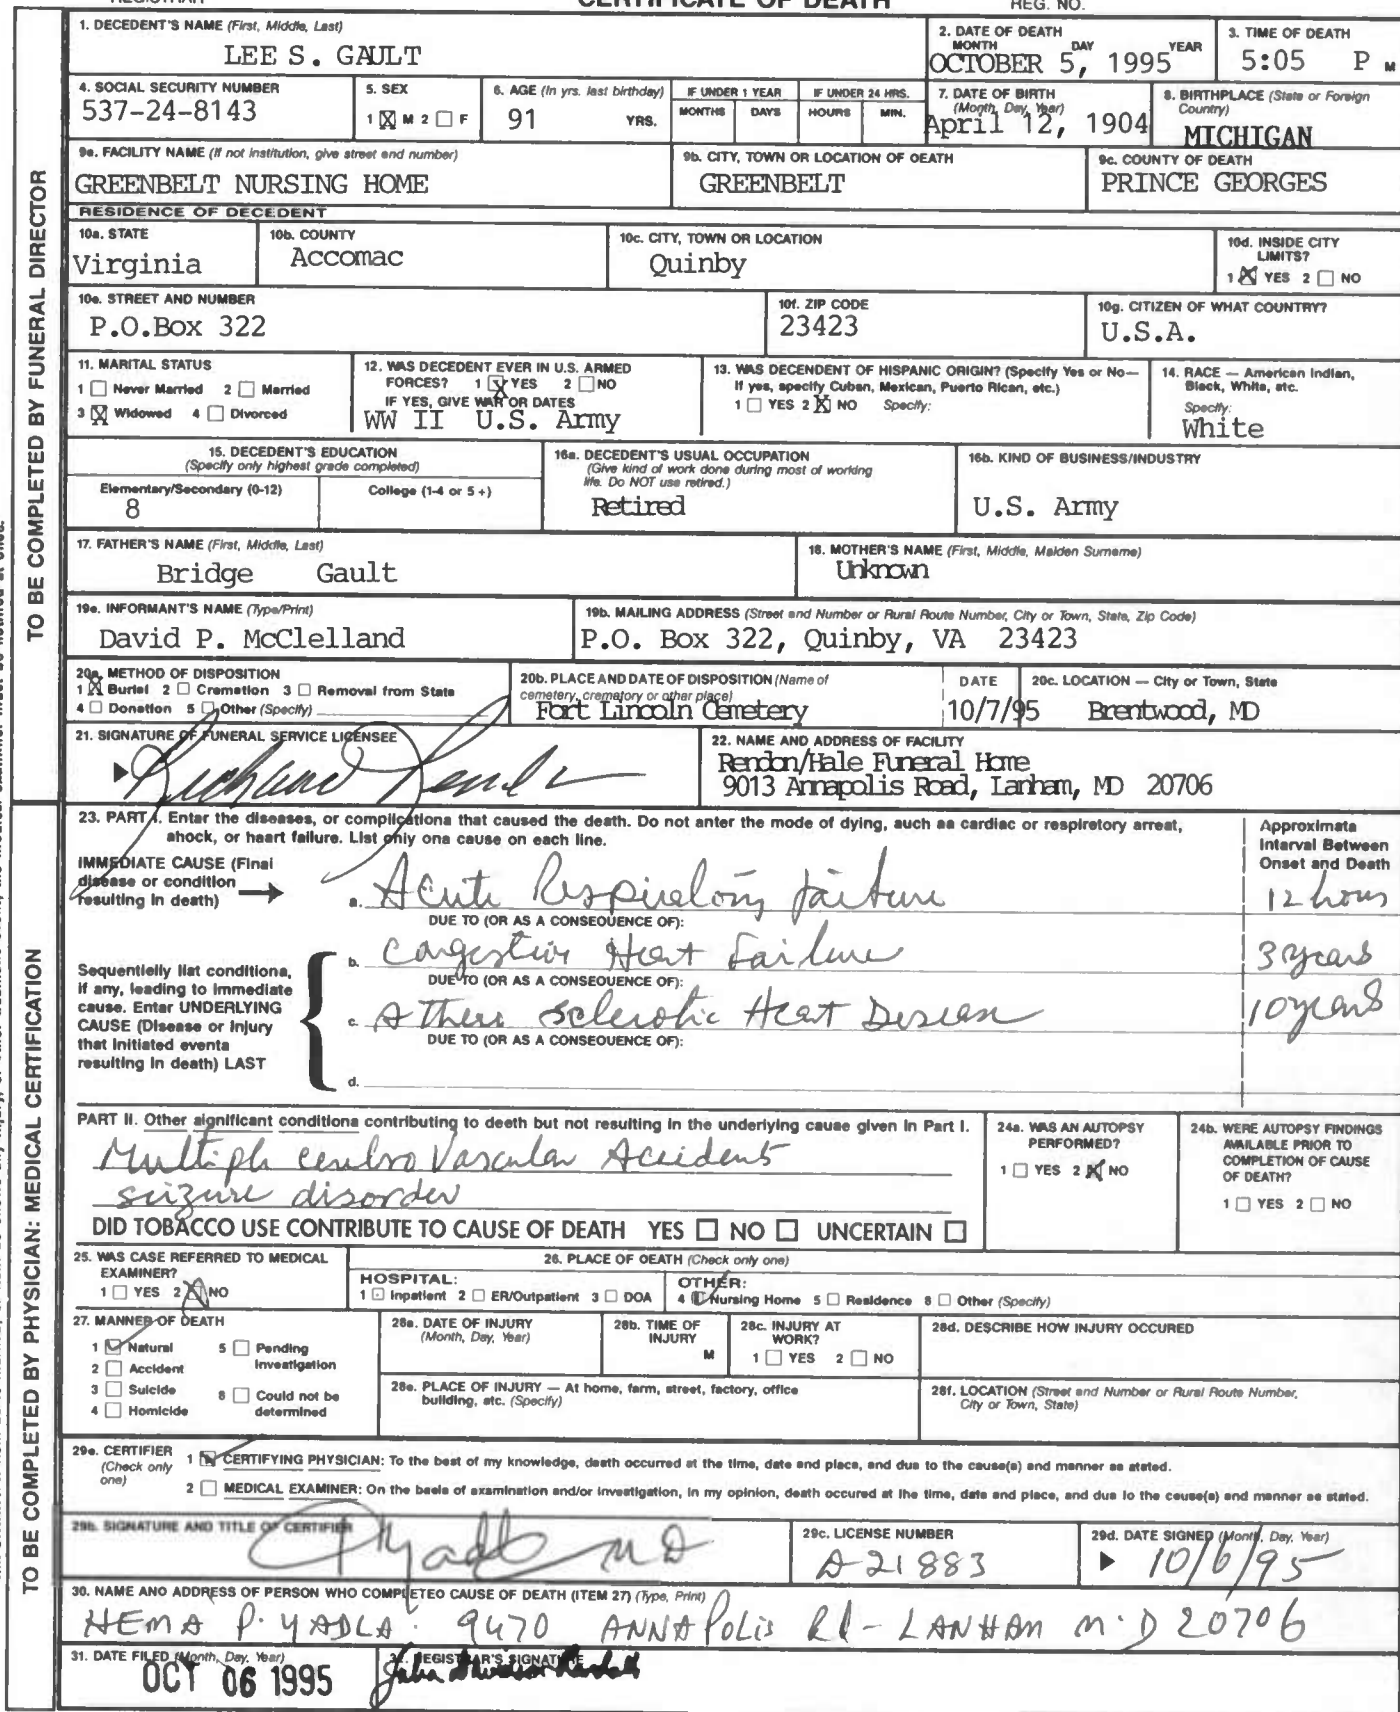 REGISTRAR
CERTIFICATE OF DEATH
REG. NO.
1. DECEDENT'S NAME (First, Middle, Last)
LEE S. GAULT
2. DATE OF DEATH
MONTH DAY YEAR
OCTOBER 5, 1995
3. TIME OF DEATH
5:05 P M
4. SOCIAL SECURITY NUMBER
537-24-8143
5. SEX
1 ☒ M 2 ☐ F
6. AGE (In yrs. last birthday)
91 YRS.
IF UNDER 1 YEAR
MONTHS DAYS
IF UNDER 24 HRS.
HOURS MIN.
7. DATE OF BIRTH
(Month, Day, Year)
April 12, 1904
8. BIRTHPLACE (State or Foreign
Country)
MICHIGAN
9a. FACILITY NAME (If not institution, give street and number)
GREENBELT NURSING HOME
9b. CITY, TOWN OR LOCATION OF DEATH
GREENBELT
9c. COUNTY OF DEATH
PRINCE GEORGES
RESIDENCE OF DECEDENT
10a. STATE
Virginia
10b. COUNTY
Accomac
10c. CITY, TOWN OR LOCATION
Quinby
10d. INSIDE CITY
LIMITS?
1 ☒ YES 2 ☐ NO
10e. STREET AND NUMBER
P.O.Box 322
10f. ZIP CODE
23423
10g. CITIZEN OF WHAT COUNTRY?
U.S.A.
11. MARITAL STATUS
1 ☐ Never Married 2 ☐ Married
3 ☒ Widowed 4 ☐ Divorced
12. WAS DECEDENT EVER IN U.S. ARMED
FORCES? 1 ☒ YES 2 ☐ NO
IF YES, GIVE WAR OR DATES
WW II U.S. Army
13. WAS DECENDENT OF HISPANIC ORIGIN? (Specify Yes or No—
If yes, specify Cuban, Mexican, Puerto Rican, etc.)
1 ☐ YES 2 ☒ NO Specify:
14. RACE — American Indian,
Black, White, etc.
Specify:
White
15. DECEDENT'S EDUCATION
(Specify only highest grade completed)
Elementary/Secondary (0-12)
8
College (1-4 or 5+)
16a. DECEDENT'S USUAL OCCUPATION
(Give kind of work done during most of working
life. Do NOT use retired.)
Retired
16b. KIND OF BUSINESS/INDUSTRY
U.S. Army
17. FATHER'S NAME (First, Middle, Last)
Bridge Gault
18. MOTHER'S NAME (First, Middle, Maiden Surname)
Unknown
19a. INFORMANT'S NAME (Type/Print)
David P. McClelland
19b. MAILING ADDRESS (Street and Number or Rural Route Number, City or Town, State, Zip Code)
P.O. Box 322, Quinby, VA 23423
20a. METHOD OF DISPOSITION
1 ☒ Burial 2 ☐ Cremation 3 ☐ Removal from State
4 ☐ Donation 5 ☐ Other (Specify)
20b. PLACE AND DATE OF DISPOSITION (Name of
cemetery, crematory or other place)
Fort Lincoln Cemetery
DATE
10/7/95
20c. LOCATION — City or Town, State
Brentwood, MD
21. SIGNATURE OF FUNERAL SERVICE LICENSEE
22. NAME AND ADDRESS OF FACILITY
Rendon/Hale Funeral Home
9013 Annapolis Road, Lanham, MD 20706
TO BE COMPLETED BY FUNERAL DIRECTOR
23. PART I. Enter the diseases, or complications that caused the death. Do not enter the mode of dying, such as cardiac or respiratory arrest,
shock, or heart failure. List only one cause on each line.
Approximate
Interval Between
Onset and Death
IMMEDIATE CAUSE (Final
disease or condition
resulting in death)
a. Acute Respiratory failure 12 hours
DUE TO (OR AS A CONSEQUENCE OF):
b. Congestive Heart Failure 3 years
DUE TO (OR AS A CONSEQUENCE OF):
c. Athero Sclerotic Heart Disease 10 years
DUE TO (OR AS A CONSEQUENCE OF):
d.
Sequentially list conditions,
if any, leading to immediate
cause. Enter UNDERLYING
CAUSE (Disease or injury
that initiated events
resulting in death) LAST
PART II. Other significant conditions contributing to death but not resulting in the underlying cause given in Part I.
Multiple cerebro Vascular Accidents
seizure disorder
DID TOBACCO USE CONTRIBUTE TO CAUSE OF DEATH YES ☐ NO ☐ UNCERTAIN ☐
24a. WAS AN AUTOPSY
PERFORMED?
1 ☐ YES 2 ☒ NO
24b. WERE AUTOPSY FINDINGS
AVAILABLE PRIOR TO
COMPLETION OF CAUSE
OF DEATH?
1 ☐ YES 2 ☐ NO
25. WAS CASE REFERRED TO MEDICAL
EXAMINER?
1 ☐ YES 2 ☒ NO
26. PLACE OF DEATH (Check only one)
HOSPITAL:
1 ☐ Inpatient 2 ☐ ER/Outpatient 3 ☐ DOA
OTHER:
4 ☒ Nursing Home 5 ☐ Residence 6 ☐ Other (Specify)
27. MANNER OF DEATH
1 ☒ Natural 5 ☐ Pending
Investigation
2 ☐ Accident
3 ☐ Suicide 6 ☐ Could not be
determined
4 ☐ Homicide
28a. DATE OF INJURY
(Month, Day, Year)
28b. TIME OF
INJURY
M
28c. INJURY AT
WORK?
1 ☐ YES 2 ☐ NO
28d. DESCRIBE HOW INJURY OCCURED
28e. PLACE OF INJURY — At home, farm, street, factory, office
building, etc. (Specify)
28f. LOCATION (Street and Number or Rural Route Number,
City or Town, State)
29a. CERTIFIER
(Check only
one)
1 ☒ CERTIFYING PHYSICIAN: To the best of my knowledge, death occurred at the time, date and place, and due to the cause(s) and manner as stated.
2 ☐ MEDICAL EXAMINER: On the basis of examination and/or investigation, in my opinion, death occured at the time, date and place, and due to the cause(s) and manner as stated.
29b. SIGNATURE AND TITLE OF CERTIFIER
MD
29c. LICENSE NUMBER
D21883
29d. DATE SIGNED (Month, Day, Year)
10/6/95
30. NAME AND ADDRESS OF PERSON WHO COMPLETED CAUSE OF DEATH (ITEM 27) (Type, Print)
HEMA P. YADLA. 9470 ANNAPOLIS Rd - LANHAM M.D 20706
31. DATE FILED (Month, Day, Year)
OCT 06 1995
32. REGISTRAR'S SIGNATURE
TO BE COMPLETED BY PHYSICIAN: MEDICAL CERTIFICATION